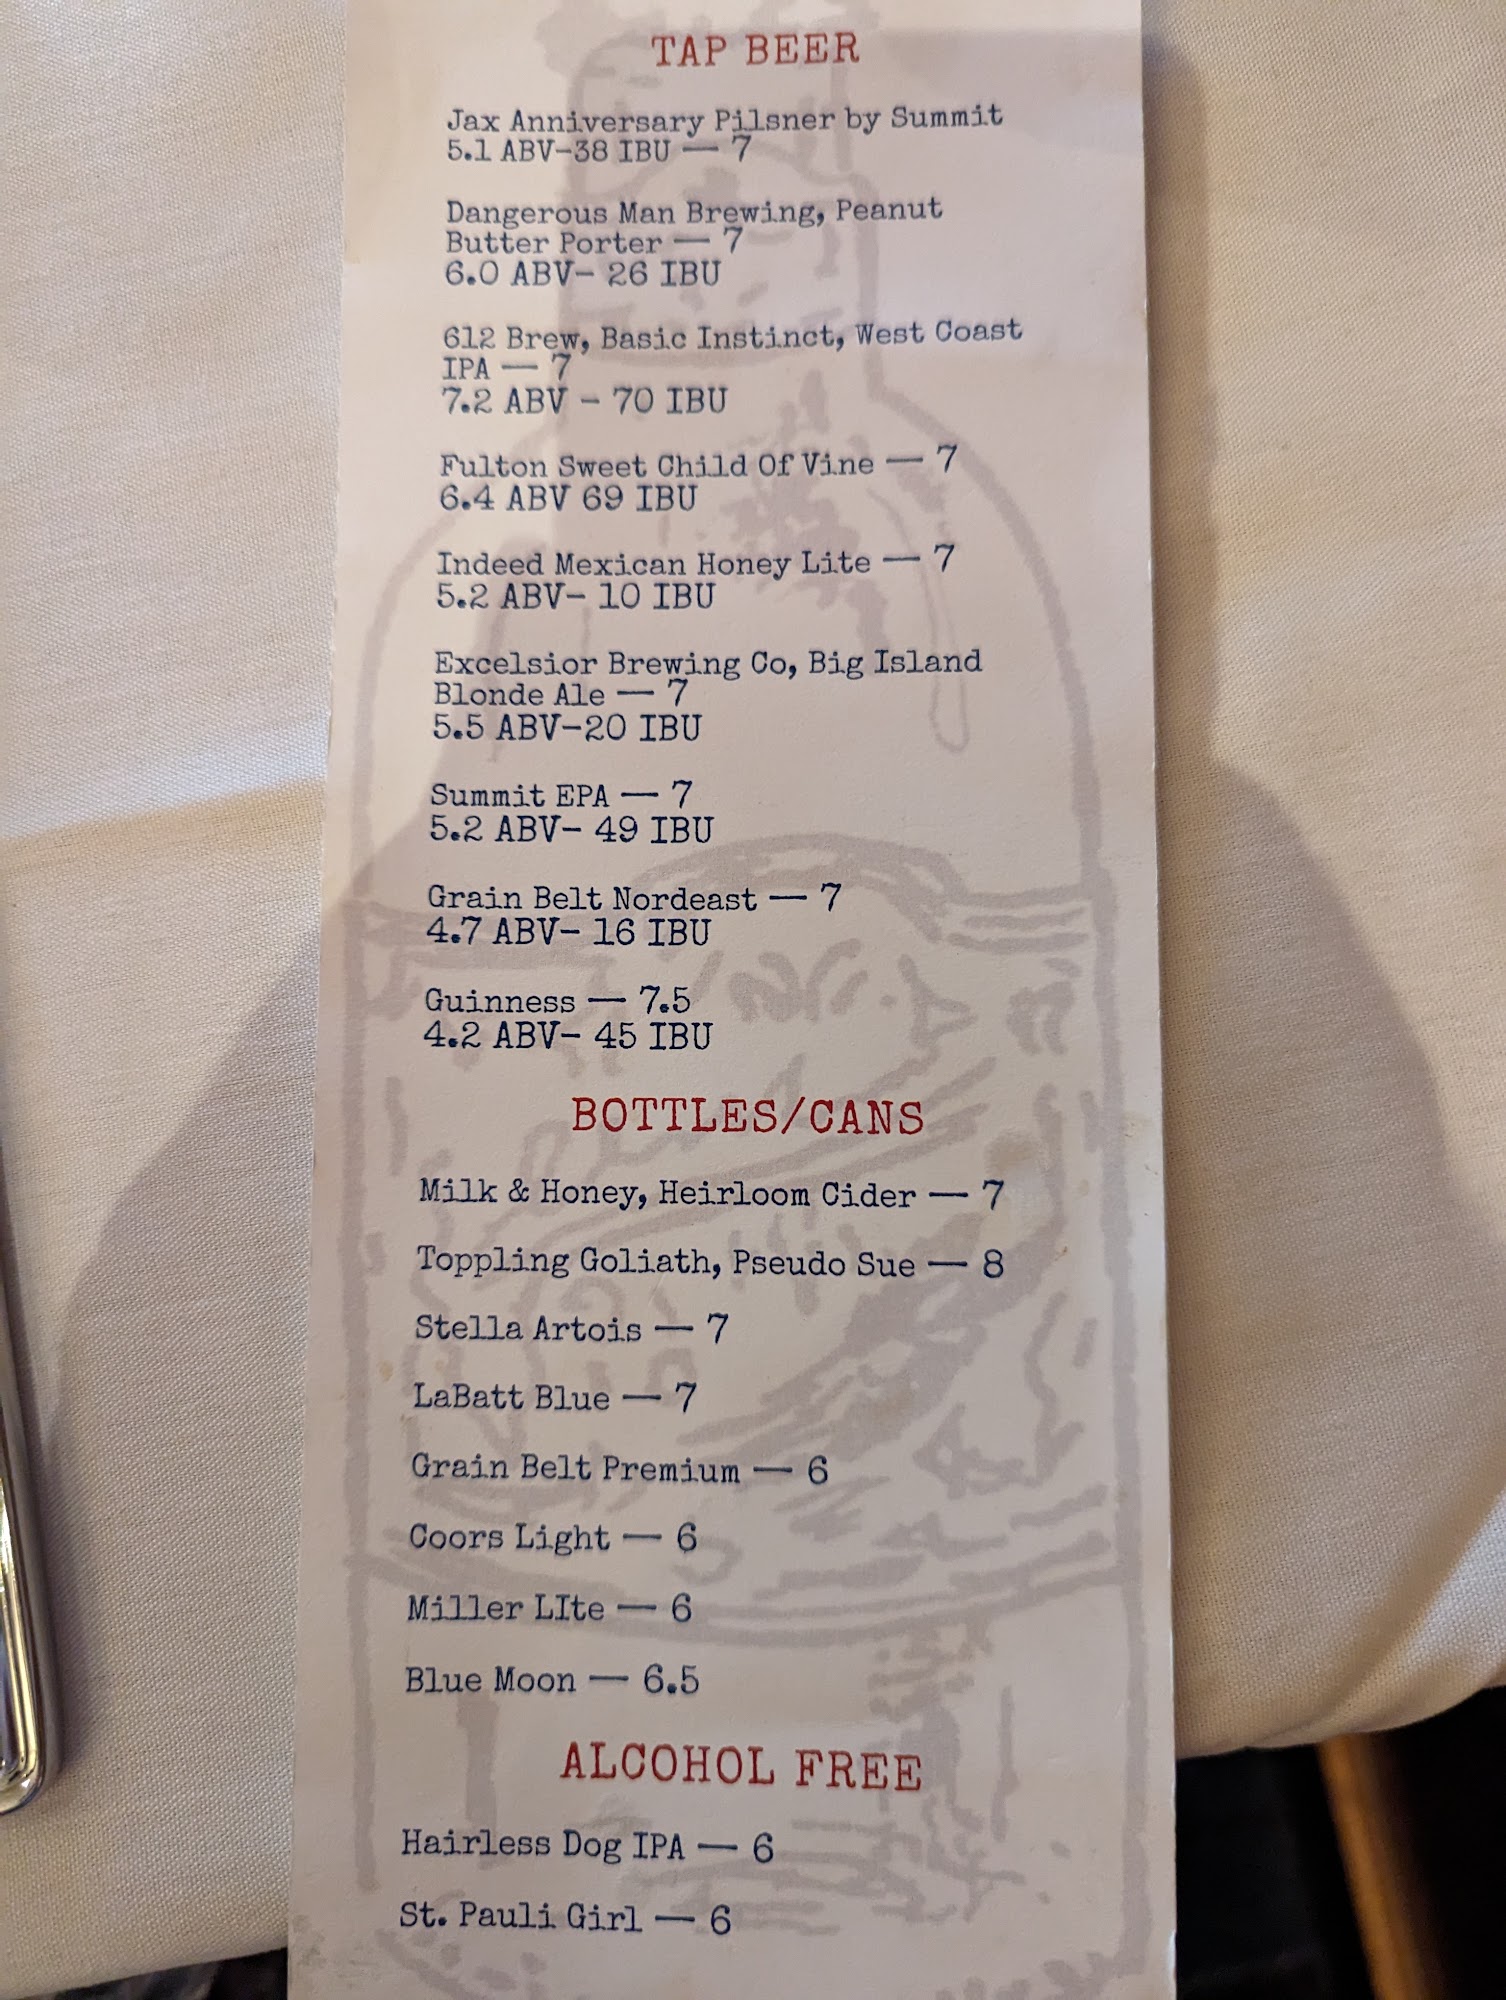 TAP BEER
Jax Anniversary Pilsner by Summit
5.1 ABV-38 IBU — 7
Dangerous Man Brewing, Peanut
Butter Porter — 7
6.0 ABV- 26 IBU
612 Brew, Basic Instinct, West Coast
IPA — 7
7.2 ABV - 70 IBU
Fulton Sweet Child Of Vine — 7
6.4 ABV 69 IBU
Indeed Mexican Honey Lite — 7
5.2 ABV- 10 IBU
Excelsior Brewing Co, Big Island
Blonde Ale — 7
5.5 ABV-20 IBU
Summit EPA — 7
5.2 ABV- 49 IBU
Grain Belt Nordeast — 7
4.7 ABV- 16 IBU
Guinness — 7.5
4.2 ABV- 45 IBU
BOTTLES/CANS
Milk & Honey, Heirloom Cider — 7
Toppling Goliath, Pseudo Sue — 8
Stella Artois — 7
LaBatt Blue — 7
Grain Belt Premium — 6
Coors Light — 6
Miller LIte — 6
Blue Moon — 6.5
ALCOHOL FREE
Hairless Dog IPA — 6
St. Pauli Girl — 6